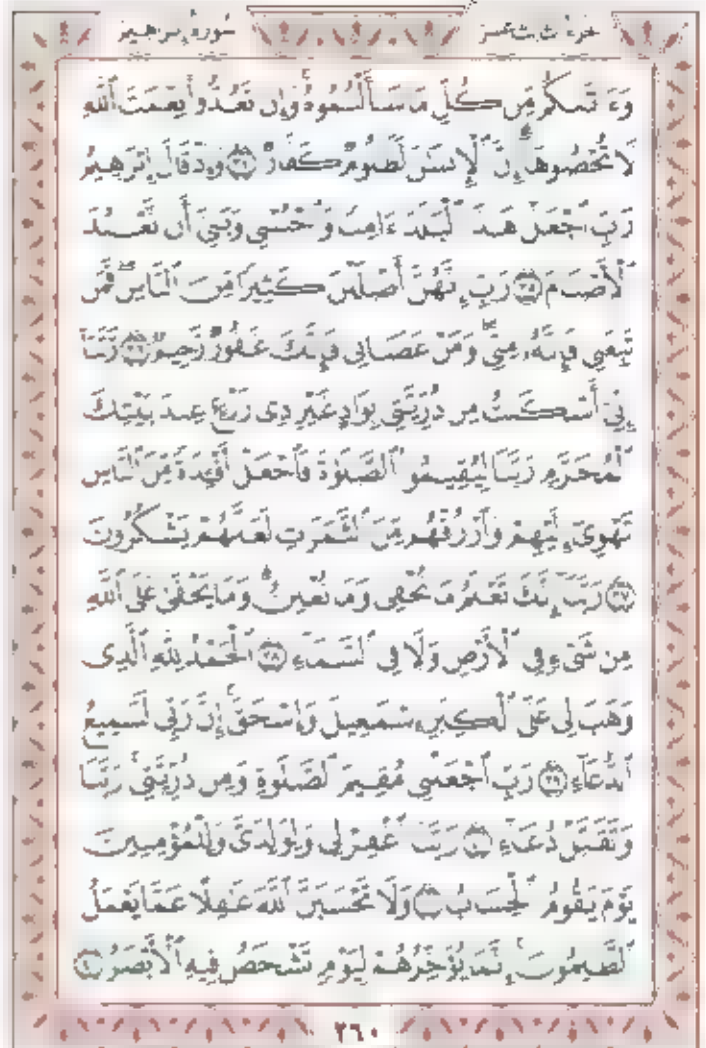 سورة إبراهيم الجزء الثالث عشر
وءاتىكم من كل ما سألتموه وإن تعدوا نعمت الله
لا تحصوها إن الإنسن لظلوم كفار ٣٤ وإذ قال إبرهيم
رب اجعل هذا البلد ءامنا واجنبني وبني أن نعبد
الأصنام ٣٥ رب إنهن أضللن كثيرا من الناس فمن
تبعني فإنه مني ومن عصاني فإنك غفور رحيم ٣٦ ربنا
إني أسكنت من ذريتي بواد غير ذي زرع عند بيتك
المحرم ربنا ليقيموا الصلوة فاجعل أفئدة من الناس
تهوي إليهم وارزقهم من الثمرت لعلهم يشكرون
٣٧ ربنا إنك تعلم ما نخفي وما نعلن وما يخفى على الله
من شيء في الأرض ولا في السماء ٣٨ الحمد لله الذي
وهب لي على الكبر إسمعيل وإسحق إن ربي لسميع
الدعاء ٣٩ رب اجعلني مقيم الصلوة ومن ذريتي ربنا
وتقبل دعاء ٤٠ ربنا اغفر لي ولولدي وللمؤمنين
يوم يقوم الحساب ٤١ ولا تحسبن الله غفلا عما يعمل
الظلمون إنما يؤخرهم ليوم تشخص فيه الأبصر ٤٢
٢٦٠